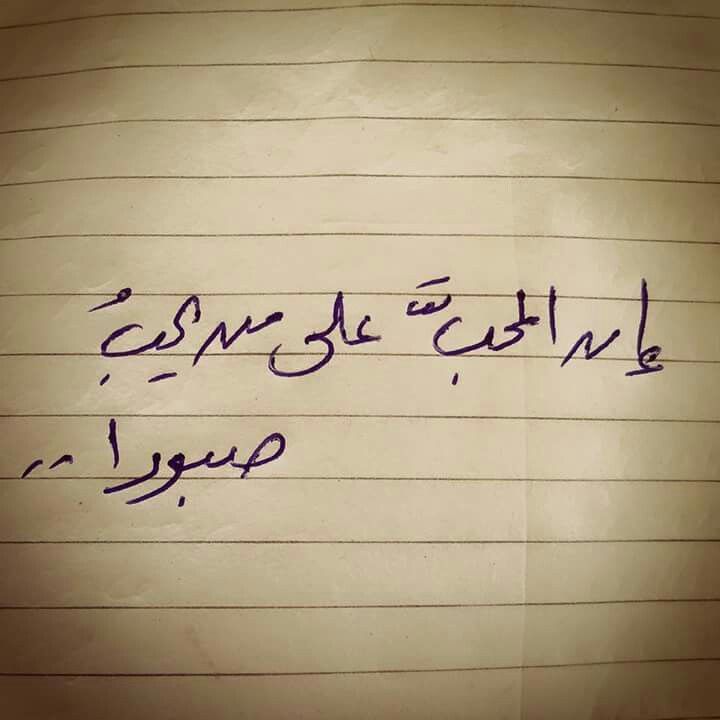 إن المحبَّ على من يحبُ
صبورا ..